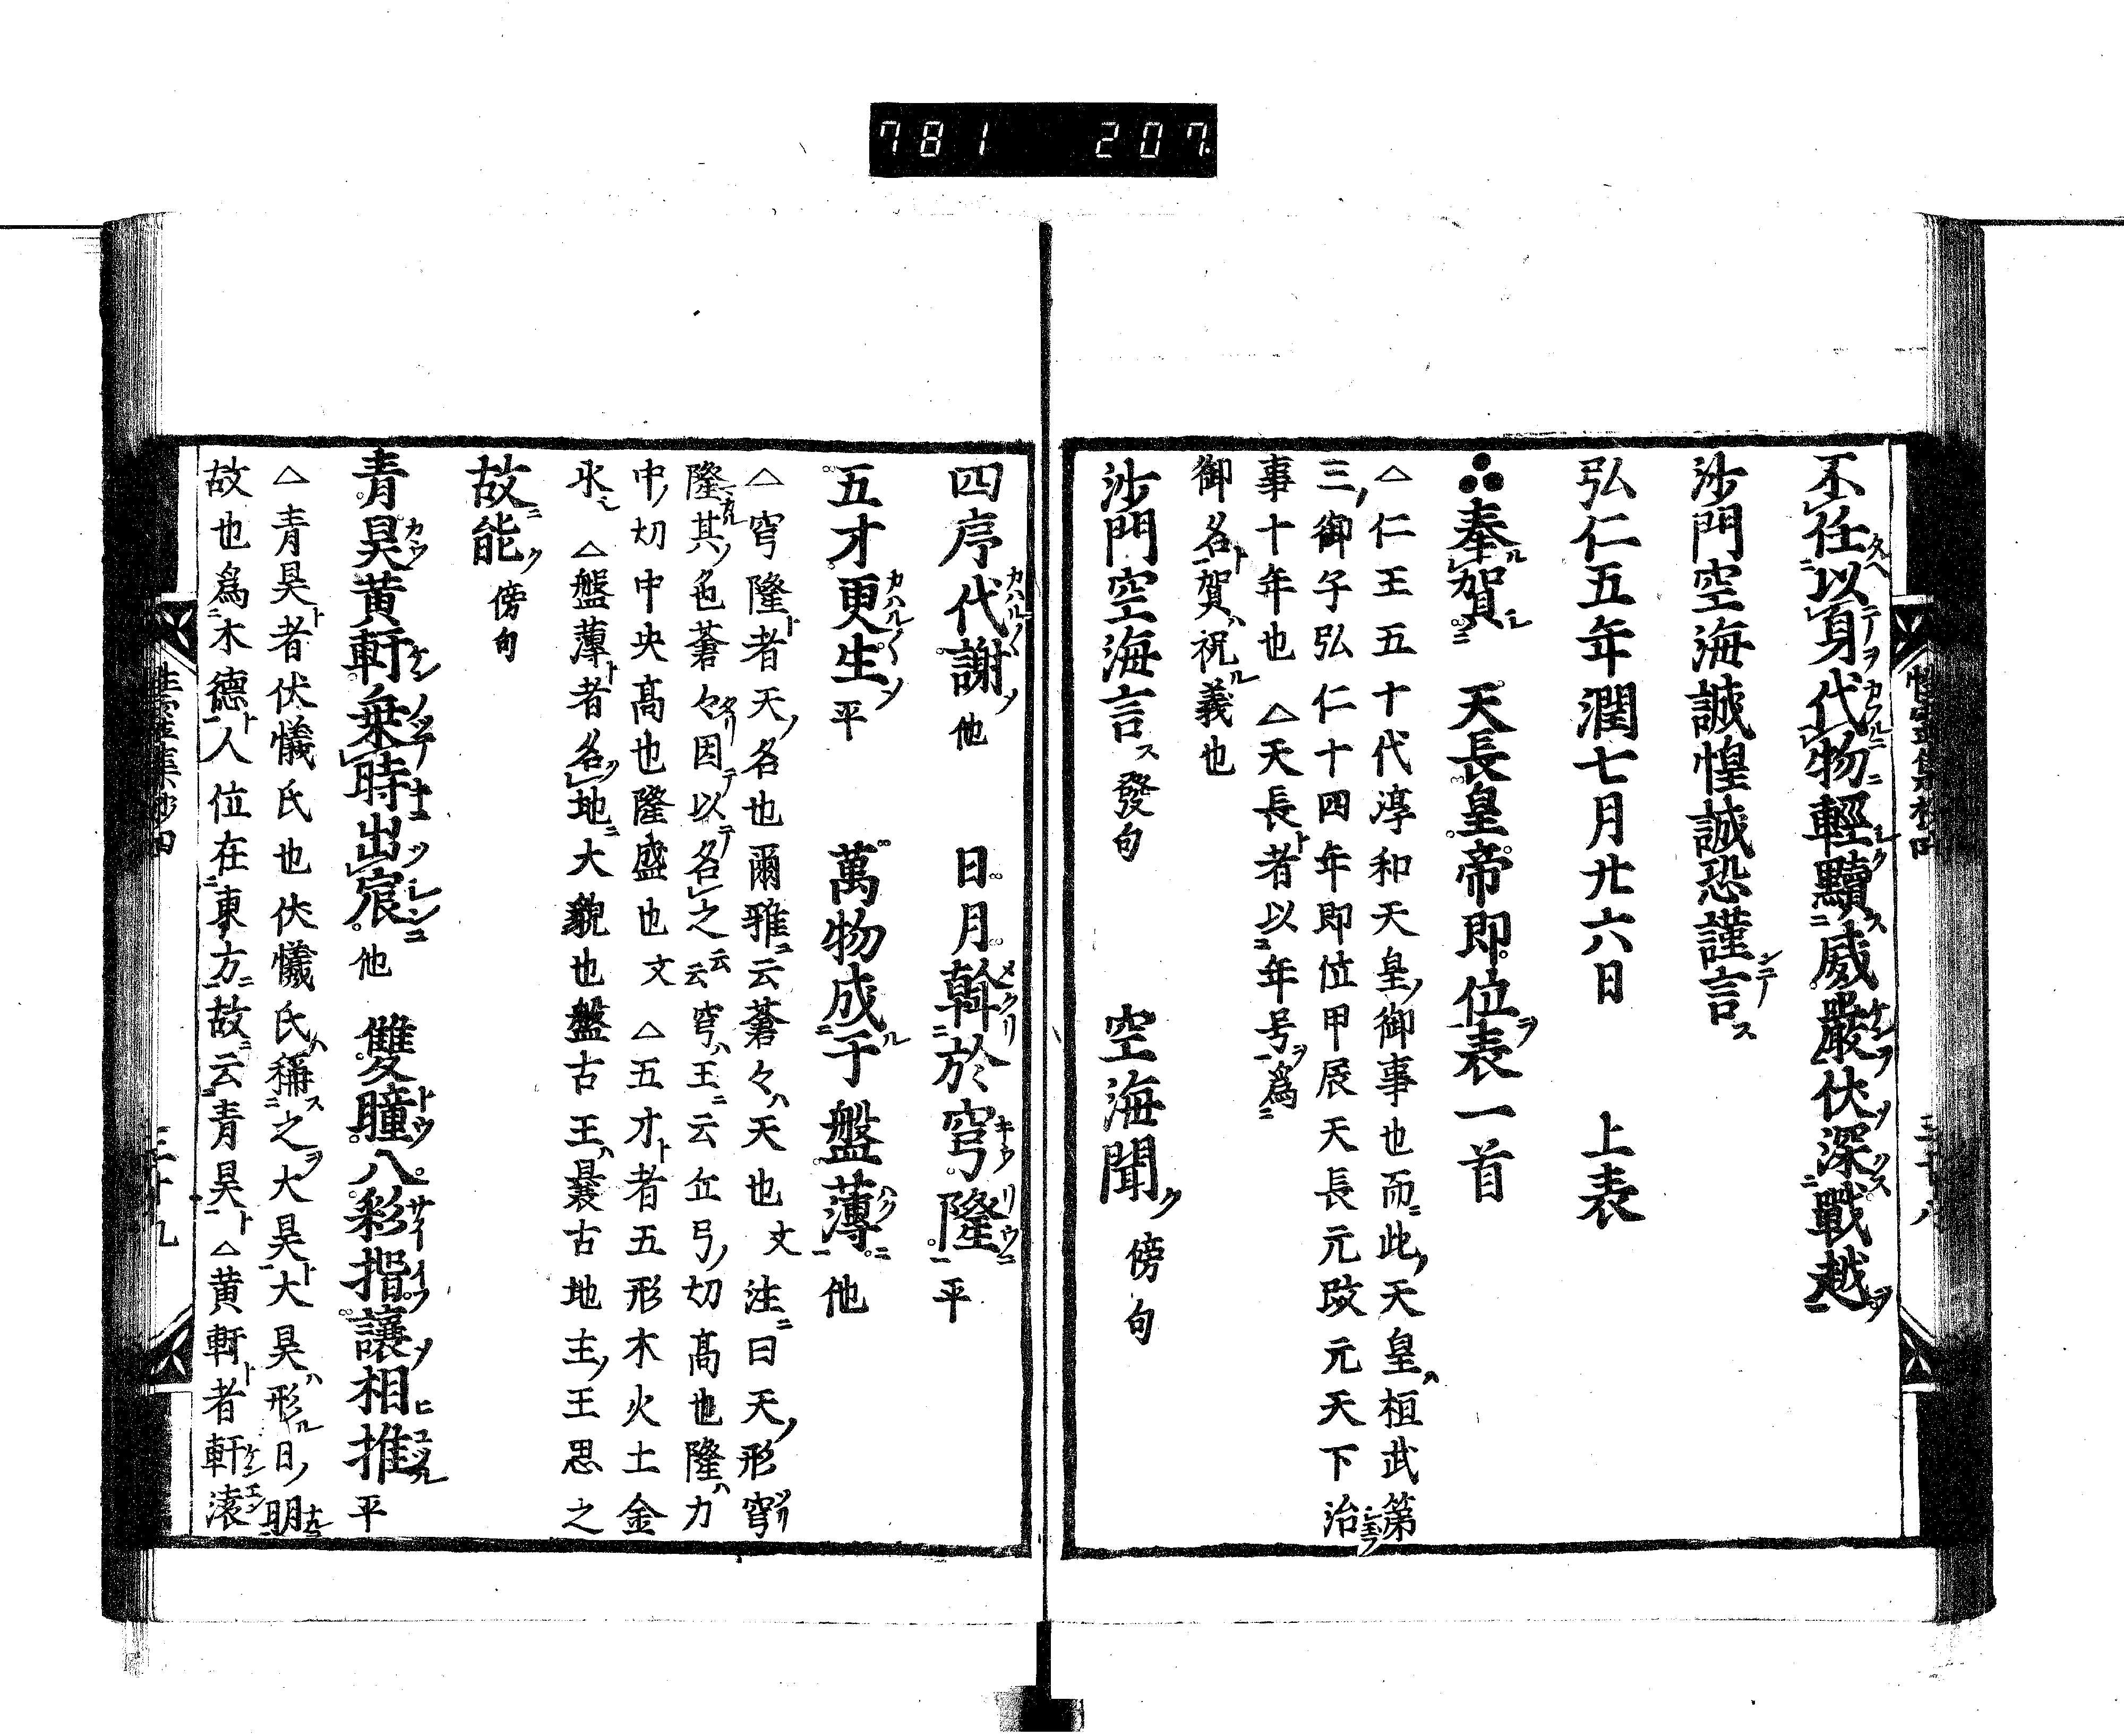 781 207
不任以身代物輕黷威嚴伏深戰越
沙門空海誠惶誠恐謹言
弘仁五年潤七月廿六日 上表
奉賀 天長皇帝即位表一首
△仁王五十代淳和天皇御事也而此天皇桓武第
三御子弘仁十四年即位甲辰天長元改元天下治
事十年也 △天長者以年号爲
御名賀祝義也
沙門空海言 發句 空海聞 傍句
四序代謝 他 日月斡於穹隆 平
五才更生 平 萬物成于盤薄 他
△穹隆者天名也爾雅云蒼々天也文注曰天形穹
隆其色蒼々因以名之云云穹王云丘弓切高也隆力
中切中央高也隆盛也文 △五才者五形木火土金
水 △盤薄者名地大貌也盤古王曩古地主王思之
故能 傍句
青昊黄軒乗時出宸 他 雙瞳八彩揖讓相推 平
△青昊者伏犧氏也伏犧氏稱之大昊大昊形日明
故也爲木德人位在東方故云青昊 △黄軒者軒轅